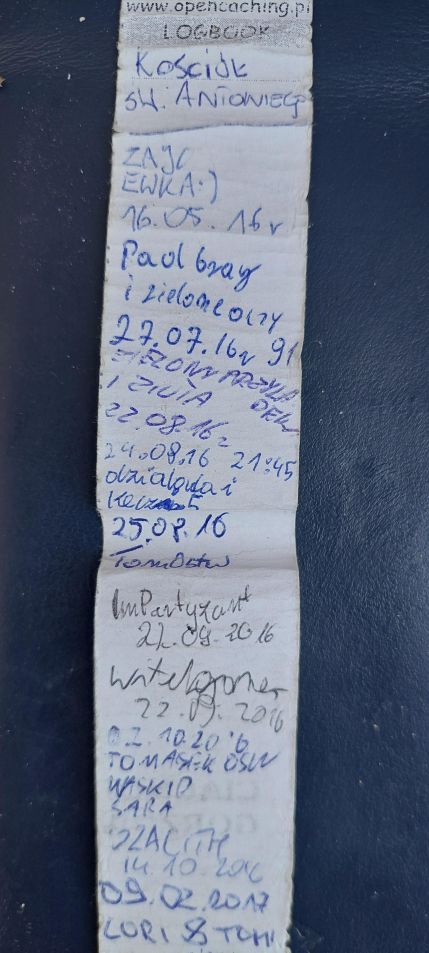 www.opencaching.pl
LOGBOOK
Kościół
św. ANTONIEGO
ZAJC
EWKA:)
16.05.16r
Padbray
i zielonooczy
27.07.16r
ZIELONY PRZYLĄ
DEK
I ZIUTA
22.08.16r
24.08.16 21:45
działqda i
25.08.16
ImPartyzant
.09.2016
22.09.2016
02.10.2016
TOMASEK OSW
WASKID
SARA
14.10.2016
09.02.2017
LORI & TOMI